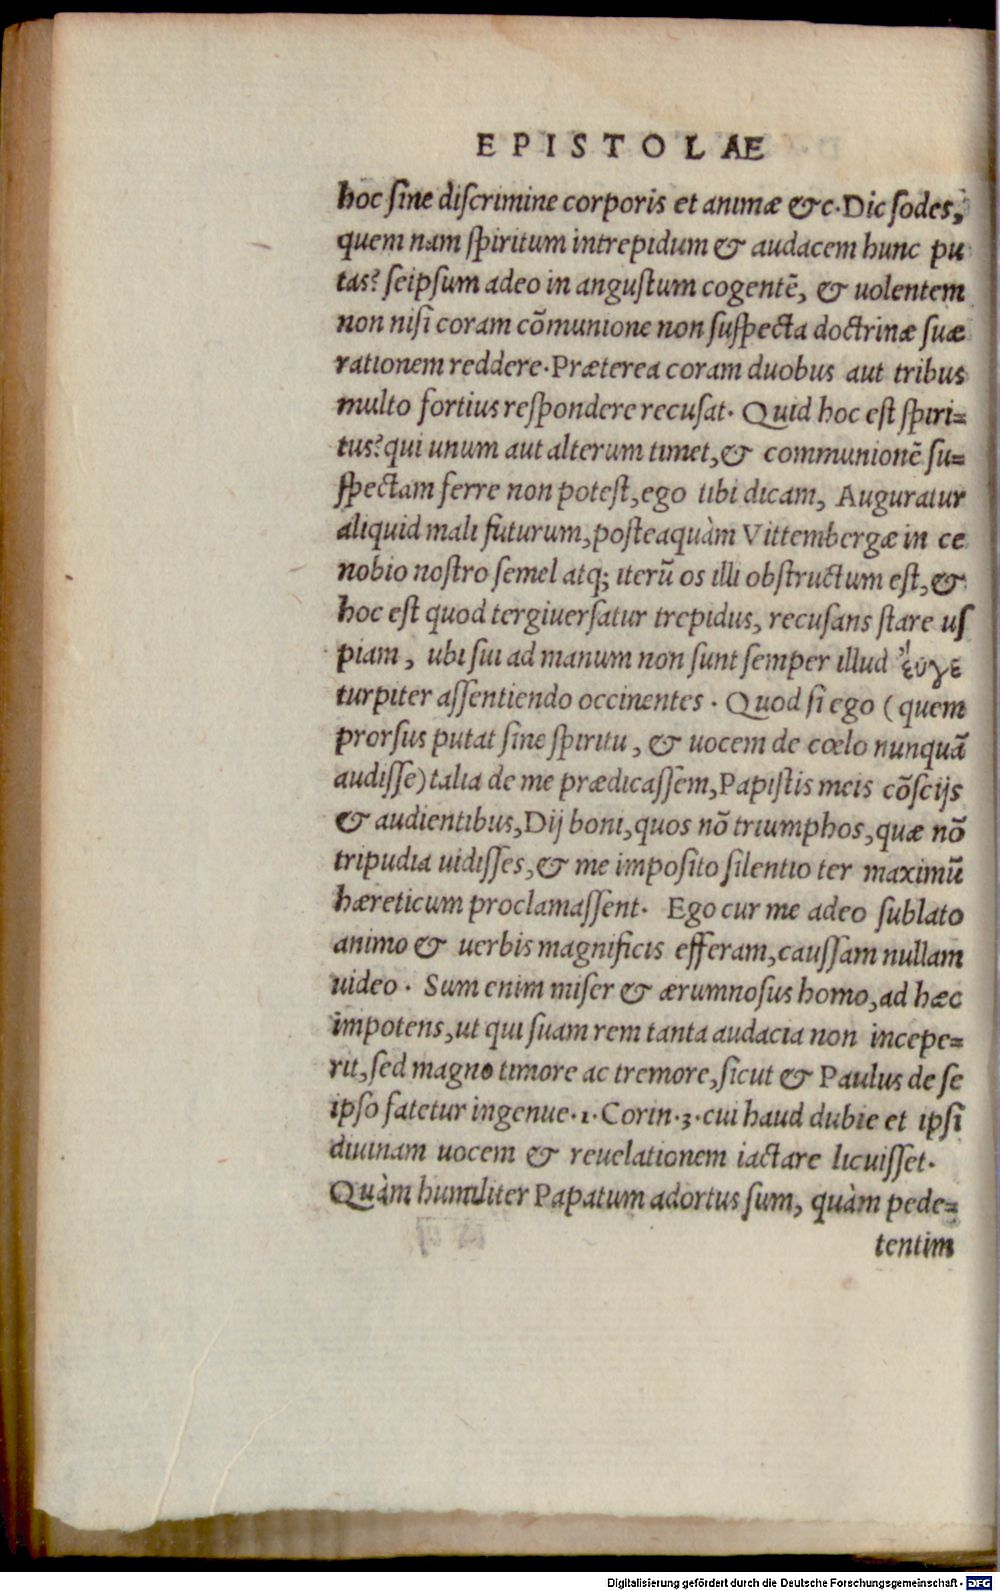 EPISTOLAE
hoc ſine diſcrimine corporis et animæ &c. Dic ſodes,
quem nam ſpiritum intrepidum & audacem hunc pu
tas? ſeipſum adeo in anguſtum cogentē, & uolentem
non niſi coram cōmunione non ſuſpecta doctrinæ ſuæ
rationem reddere. Præterea coram duobus aut tribus
multo fortius reſpondere recuſat. Quid hoc eſt ſpiri=
tus? qui unum aut alterum timet, & communionē ſu=
ſpectam ferre non poteſt, ego tibi dicam, Auguratur
aliquid mali futurum, poſteaquàm Vittembergæ in ce
nobio noſtro ſemel atq; iterū os illi obſtructum eſt, &
hoc eſt quod tergiuerſatur trepidus, recuſans ſtare uſ
piam, ubi ſui ad manum non ſunt ſemper illud ἔυγε
turpiter aſſentiendo occinentes. Quod ſi ego (quem
prorſus putat ſine ſpiritu, & uocem de cœlo nunquā
audiſſe) talia de me prædicaſſem, Papiſtis meis cōſcijs
& audientibus, Dij boni, quos nō triumphos, quæ nō
tripudia uidiſſes, & me impoſito ſilentio ter maximū
hæreticum proclamaſſent. Ego cur me adeo ſublato
animo & uerbis magnificis efferam, cauſſam nullam
uideo. Sum enim miſer & ærumnoſus homo, ad hæc
impotens, ut qui ſuam rem tanta audacia non incepe=
rit, ſed magno timore ac tremore, ſicut & Paulus de ſe
ipſo fatetur ingenue. 1. Corin. 3. cui haud dubie et ipſi
diuinam uocem & reuelationem iactare licuiſſet.
Quàm humiliter Papatum adortus ſum, quàm pede=
tentim
Digitalisierung gefördert durch die Deutsche Forschungsgemeinschaft - DFG